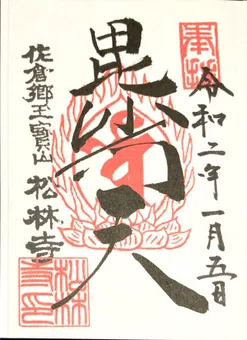 奉拝
令和二年一月五日
毘沙門天
佐倉郷玉寳山 松林寺